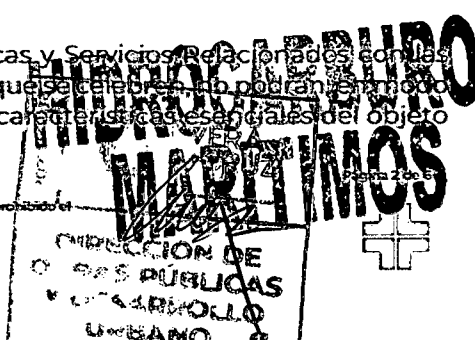 cas y Servicios Relacionados con las
que se celebren, no podrán, en modo
características esenciales del objeto
HIDROCARBURO
MARITIMOS
VERA
CRUZ
Página 2 de 6
prohibido el
DIRECCIÓN DE
OBRAS PÚBLICAS
Y DESARROLLO
URBANO